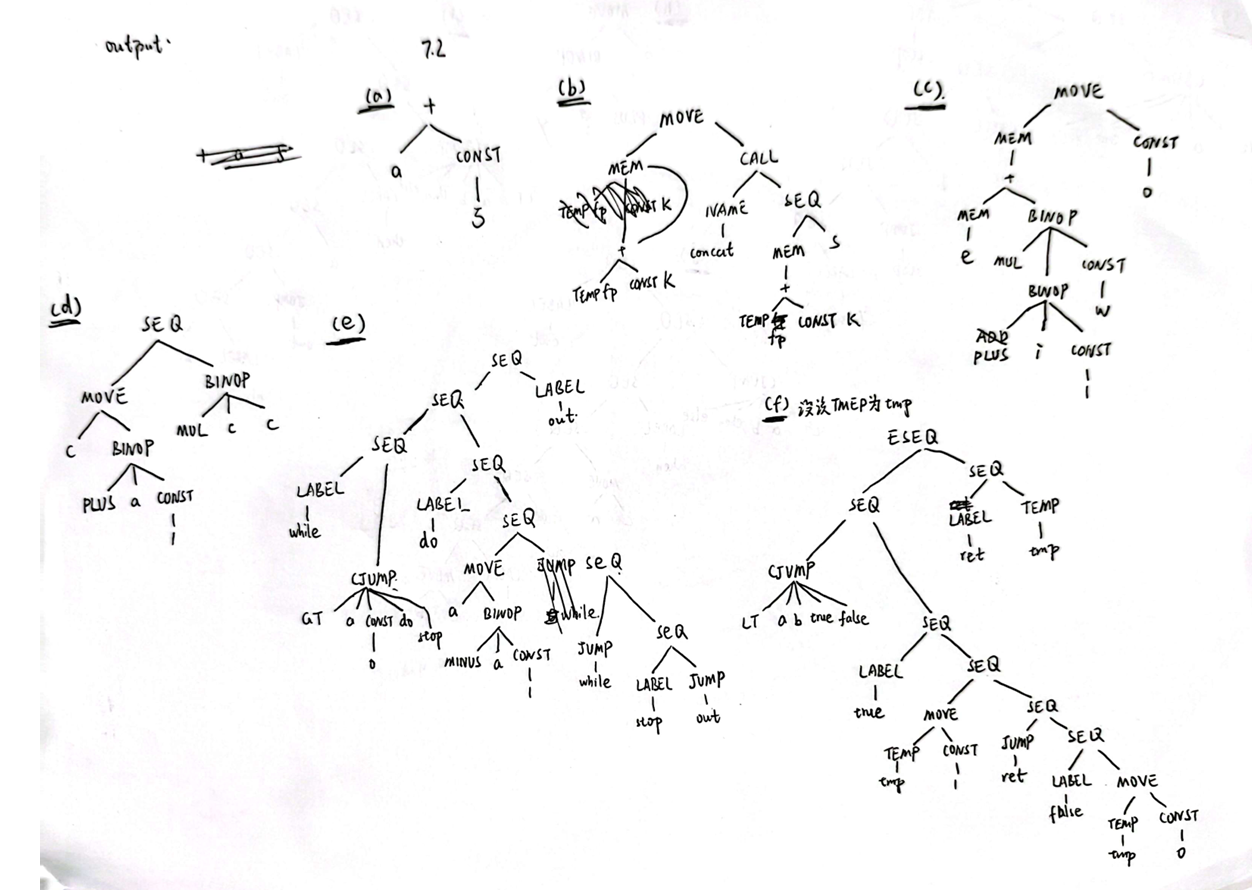 output:
7.2
(a)
+
a CONST
5
(b)
MOVE
MEM CALL
TEMP fp CONST K
NAME SEQ
concat MEM s
+ +
TEMP fp CONST K
TEMP fp CONST K
(c).
MOVE
MEM CONST
+ 0
MEM BINOP
e MUL CONST
BINOP w
PLUS i CONST
1
(d)
SEQ
MOVE BINOP
c BINOP MUL c c
PLUS a CONST
1
(e)
SEQ
SEQ LABEL
SEQ out.
SEQ
LABEL LABEL
while do SEQ
CJUMP. MOVE JUMP SEQ
GT a CONST do stop
0
a BINOP while.
MINUS a CONST
1
JUMP SEQ
while LABEL JUMP
stop out
(f) 没该TMEP为tmp
ESEQ
SEQ SEQ
LABEL TEMP
ret tmp
CJUMP
LT a b true false
SEQ
LABEL SEQ
true MOVE SEQ
TEMP CONST JUMP SEQ
tmp 1 ret LABEL MOVE
false TEMP CONST
tmp 0